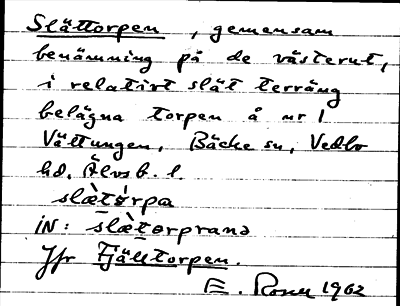 Slättorpen, gemensam
benämning på de västerut,
i relativt slät terräng
belägna torpen å nr 1
Vättungen, Bäcke sn, Vedbo
hd, Älvsb. l.
slæ̀tørpa
IN: slæ̀tørpranə
Jfr Fjälltorpen.
E. Rosell 1962